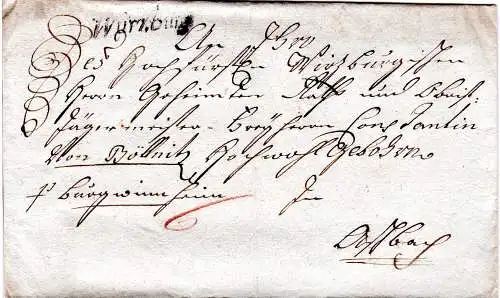 Würzburg
An Ihro
Des Hochfürstln Wirzburgissen
Herrn Geheimten Raths und Obrist
Jägermeister Freyherrn Constantin
von Pöllnitz Hochwohl Gebohrn
p burgwinnheim In
Assbach